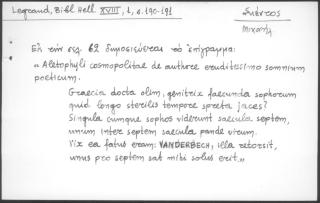 Legrand, Bibl. Hell. XVIII, 1, σ. 190-191
Σύντεος
Μιχαήλ
Εἰς τὴν σελ. 62 δημοσιεύεται τὸ ἐπίγραμμα:
« Aletophyli cosmopolitae de authore eruditissimo somnium
poeticum.
Graecia docta olim, genitrix faecunda sophorum
quid longo sterilis tempore spreta jaces?
Singula cumque sophos viderunt saecula septem,
unum inter septem saecula pande virum.
Vix ea fatus eram: VANDERBECH, illa retorsit,
unus pro septem sat mihi solus erit.»